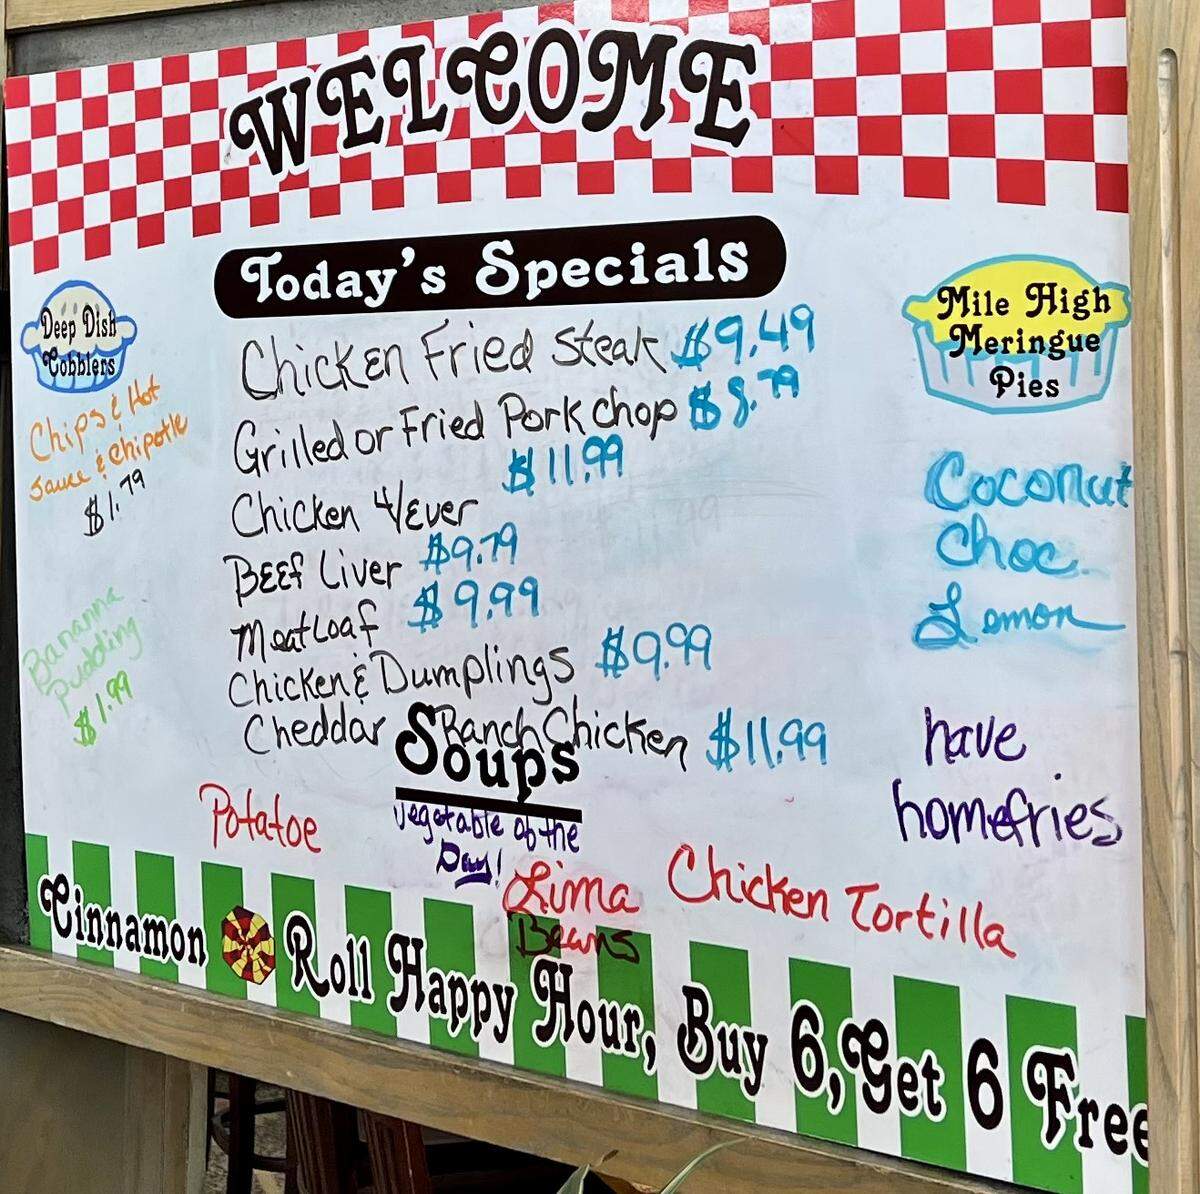 WELCOME
Today's Specials
Deep Dish
Cobblers
Chips & Hot
Sauce & Chipotle
$1.79
Bananna
Pudding
$1.99
Chicken Fried Steak $9.49
Grilled or Fried Pork Chop $8.79
$11.99
Chicken 4/Ever
Beef Liver $9.79
Meatloaf $9.99
Chicken & Dumplings $9.99
Cheddar Ranch Chicken $11.99
Mile High
Meringue
Pies
Coconut
Choc.
Lemon
have
homefries
Soups
Potatoe
Vegetable of the
Day!
Lima
Beans
Chicken Tortilla
Cinnamon Roll Happy Hour, Buy 6, Get 6 Free